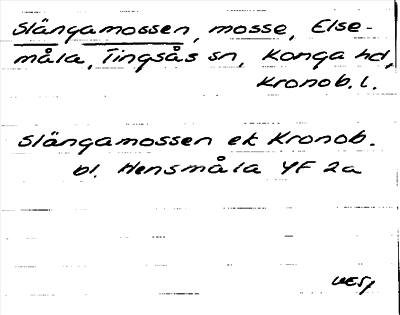 Slängamossen, mosse, Else-
måla, Tingsås sn, Konga hd,
Kronob. l.
Slängamossen ek Kronob.
bl. Hensmåla YF 2a